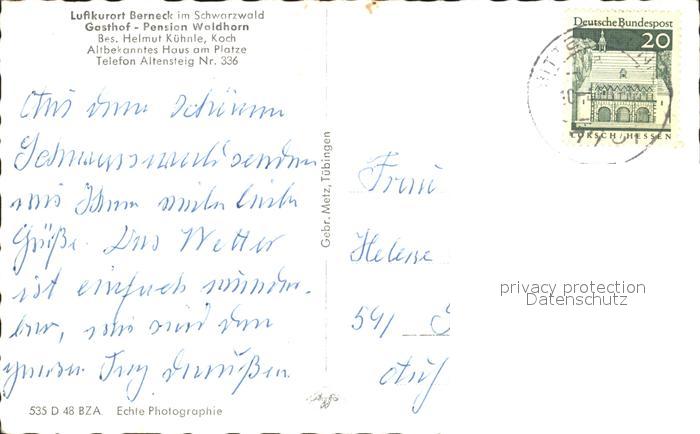 Luftkurort Berneck im Schwarzwald
Gasthof - Pension Waldhorn
Bes. Helmut Kühnle, Koch
Altbekanntes Haus am Platze
Telefon Altensteig Nr. 336
Aus dem schönen
Schwarzwald senden
wir Ihnen viele liebe
Grüße. Das Wetter
ist einfach wunder-
bar, wir sind den
ganzen Tag draußen.
535 D 48 BZA Echte Photographie
Gebr. Metz, Tübingen
Deutsche Bundespost
20
LORSCH/HESSEN
Frau
Helene
591
privacy protection
Datenschutz